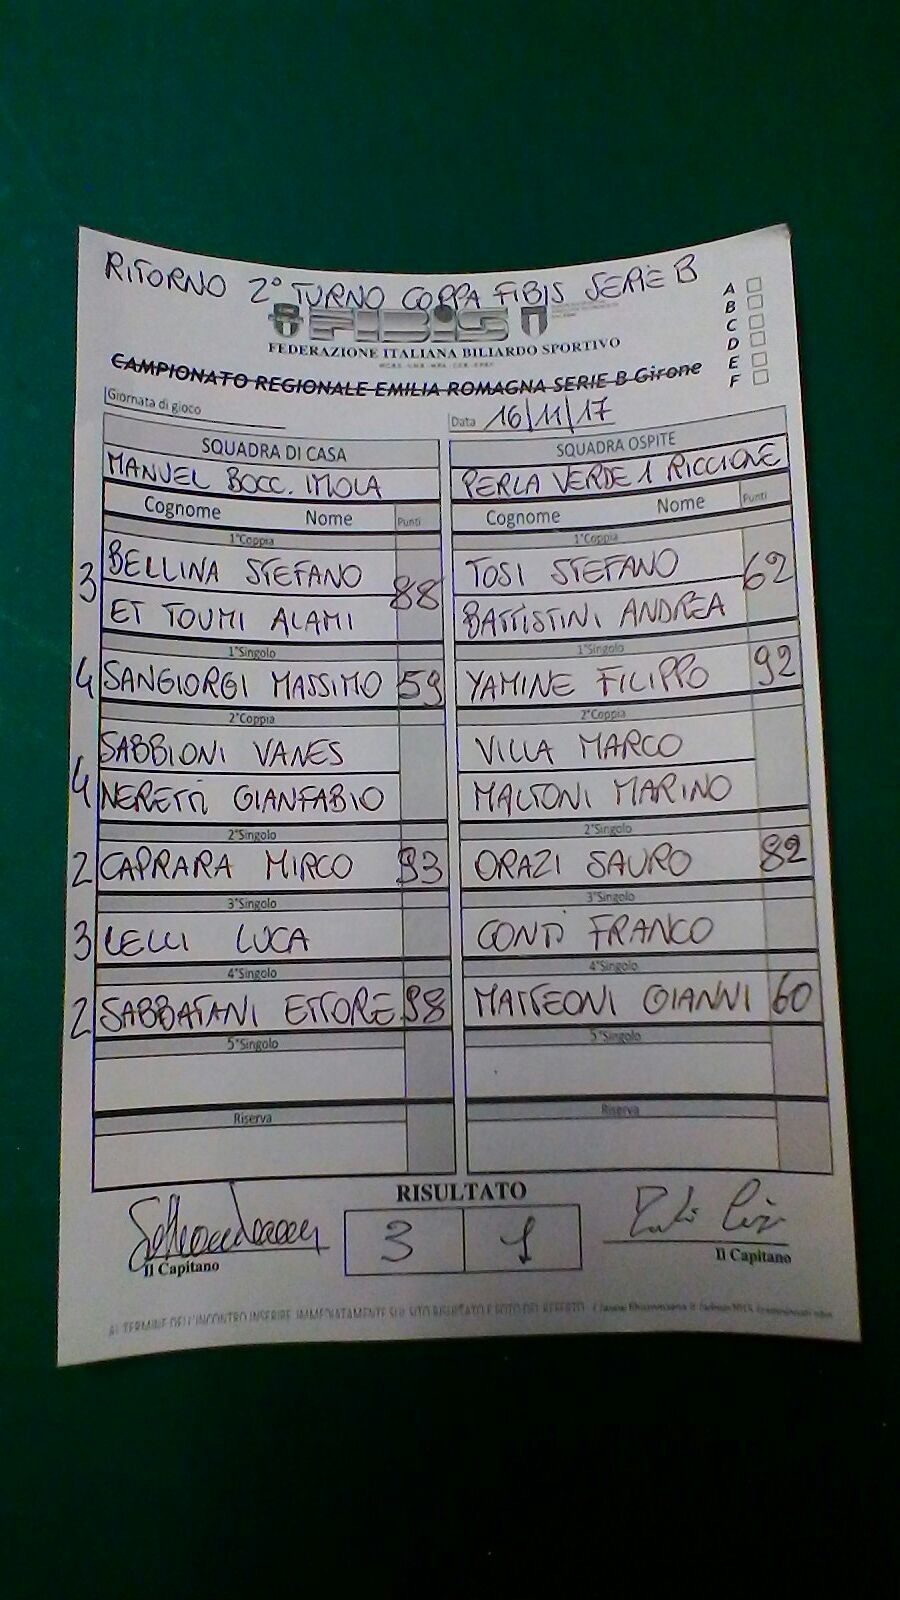 RITORNO 2° TURNO COPPA FIBIS SERIE B
FIBIS
FEDERAZIONE ITALIANA BILIARDO SPORTIVO
CAMPIONATO REGIONALE EMILIA ROMAGNA SERIE B Girone
A
B
C
D
E
F
Giornata di gioco
Data 16/11/17
SQUADRA DI CASA SQUADRA OSPITE
MANUEL BOCC. IMOLA PERLA VERDE 1 RICCIONE
Cognome Nome Punti Cognome Nome Punti
1°Coppia 1°Coppia
3 BELLINA STEFANO 88 TOSI STEFANO 62
ET TOUMI ALAMI BATTISTINI ANDREA
1°Singolo 1°Singolo
4 SANGIORGI MASSIMO 59 YAMINE FILIPPO 92
2°Coppia 2°Coppia
SABBIONI VANES VILLA MARCO
4 NERETTI GIANFABIO MALTONI MARINO
2°Singolo 2°Singolo
2 CAPRARA MIRCO 93 ORAZI SAURO 82
3°Singolo 3°Singolo
3 LELLI LUCA CONTI FRANCO
4°Singolo 4°Singolo
2 SABBATANI ETTORE 98 MATTEONI GIANNI 60
5°Singolo 5°Singolo
Riserva Riserva
RISULTATO
3 1
Il Capitano Il Capitano
AL TERMINE DELL'INCONTRO INSERIRE IMMEDIATAMENTE SUL SITO RISULTATO E FOTO DEL REFERTO